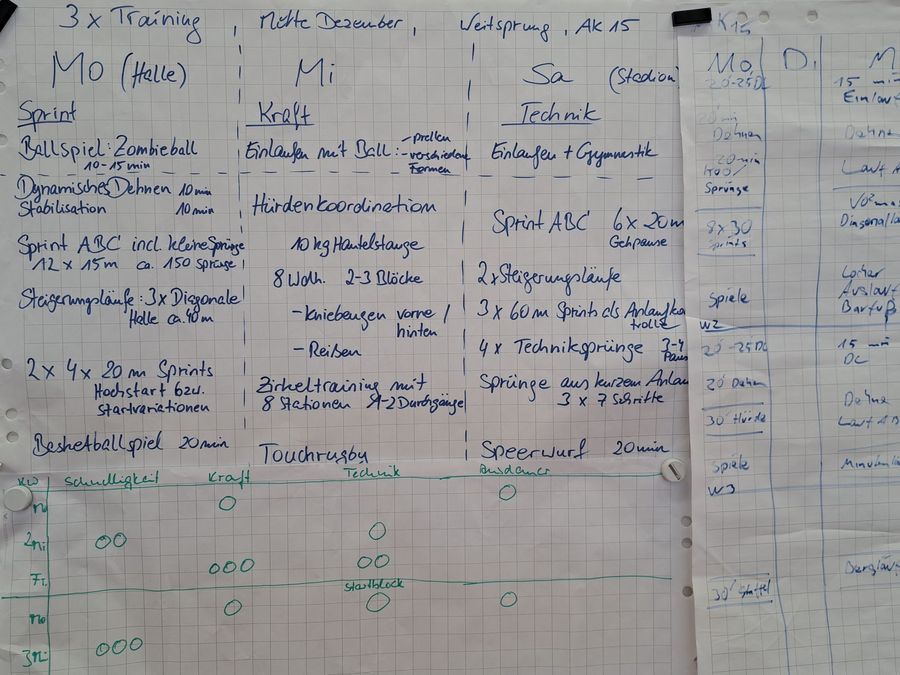 3 x Training , Mitte Dezember, Weitsprung, AK 15
Mo (Halle)
Sprint
Ballspiel: Zombieball
10-15 min
Dynamisches Dehnen 10 min
Stabilisation 10 min
Sprint ABC incl. kleine Sprünge
12 x 15m ca. 150 Sprünge
Steigerungsläufe: 3 x Diagonale
Halle ca. 40m
2 x 4 x 20m Sprints
Hochstart bzw.
Startvariationen
Basketballspiel 20min
Mi
Kraft
Einlaufen mit Ball: - prellen
- verschiedene
Formen
Hürdenkoordination
10 kg Hantelstange
8 Wdh. 2-3 Blöcke
- Kniebeugen vorne /
hinten
- Reißen
Zirkeltraining mit
8 Stationen 1-2 Durchgänge
Touchrugby
Sa (Stadion)
Technik
Einlaufen + Gymnastik
Sprint ABC 6 x 20m
Gehpause
2 x Steigerungsläufe
3 x 60m Sprint als Anlaufko
trolle
4 x Techniksprünge 3-4
Paus
Sprünge aus kurzem Anlau
3 x 7 Schritte
Speerwurf 20min
KW Schnelligkeit Kraft Technik Ausdauer
Mo
2 Mi
Fr.
Startblock
Mo
3 Mi
K 15
Mo, Di M
20'-25' DL
20 min
Dehnen
20 min
Sprünge
8 x 30
Sprints
Spiele
W2
20'-25' DL
20' Dehnen
30' Hürde
Spiele
W3
30' Staffel
15 min
Einlauf
Dehne
Lauf A
Diagonalla
Locker
Auslauf
Barfuß
15 min
DL
Dehne
Lauf AB
Minutenlä
Bergläuf